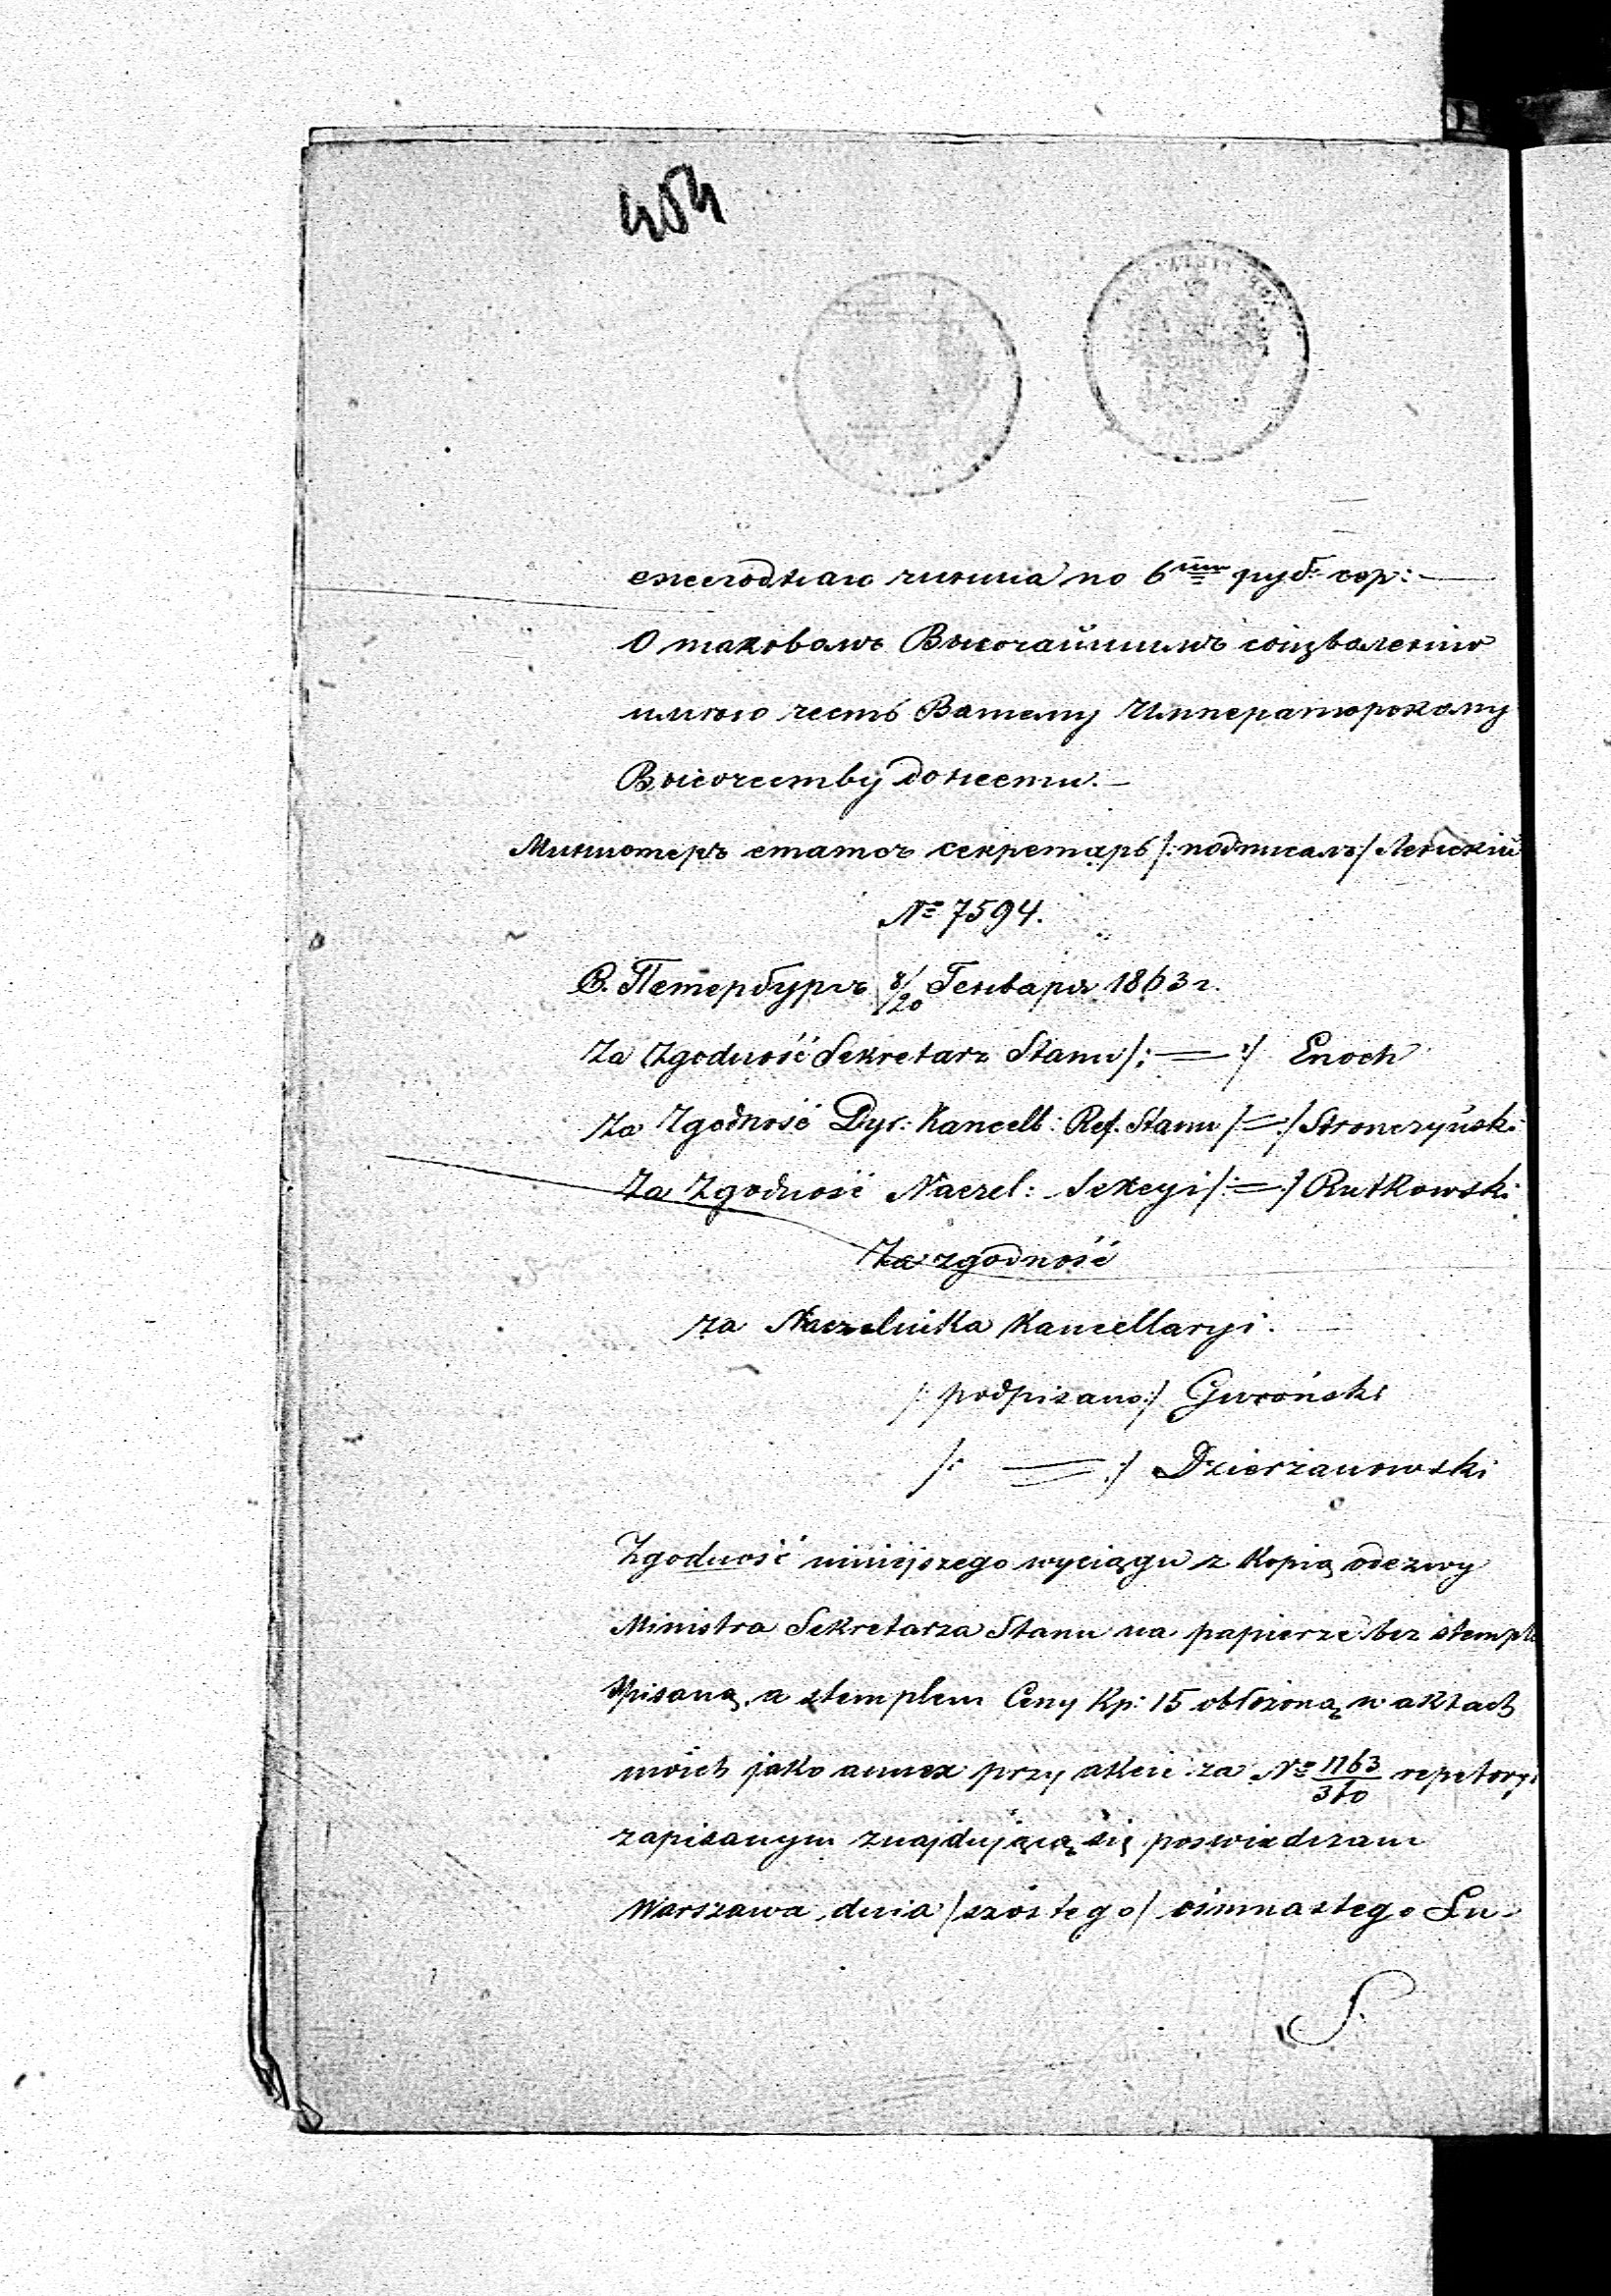 404
ежегоднаго чинша по 6ти руб: сер:
О таковомъ Высочайшимъ соизволенію
имѣю честь Вашему Императорскому
Высочеству донести.
Министеръ статсъ секретарь /: подписалъ :/ Ленскій
№ 7594.
С. Петербургъ 8/20 Генваря 1863 г.
Za Zgodność Sekretarz Stanu /: = :/ Enoch
Za Zgodność Dyr: Kancell: Ref. Stanu /: = :/ Stronczyński
Za Zgodność Naczel: Sekcyi /: = :/ Rutkowski
Za zgodność
za Naczelnika Kancellaryi.
/: podpisano :/ Gwroński
/: = :/ Dzierżanowski
Zgodność niniejszego wyciągu z Kopią odezwy
Ministra Sekretarza Stanu na papierze bez stempla
spisaną, a stemplem Ceny Kp: 15 obłożoną w aktach
moich jako annex przy akcie za № 1163/360 repetoryi
zapisanym znajdującą się poświadczam
Warszawa dnia /szóstego/ ośmnastego Lu-